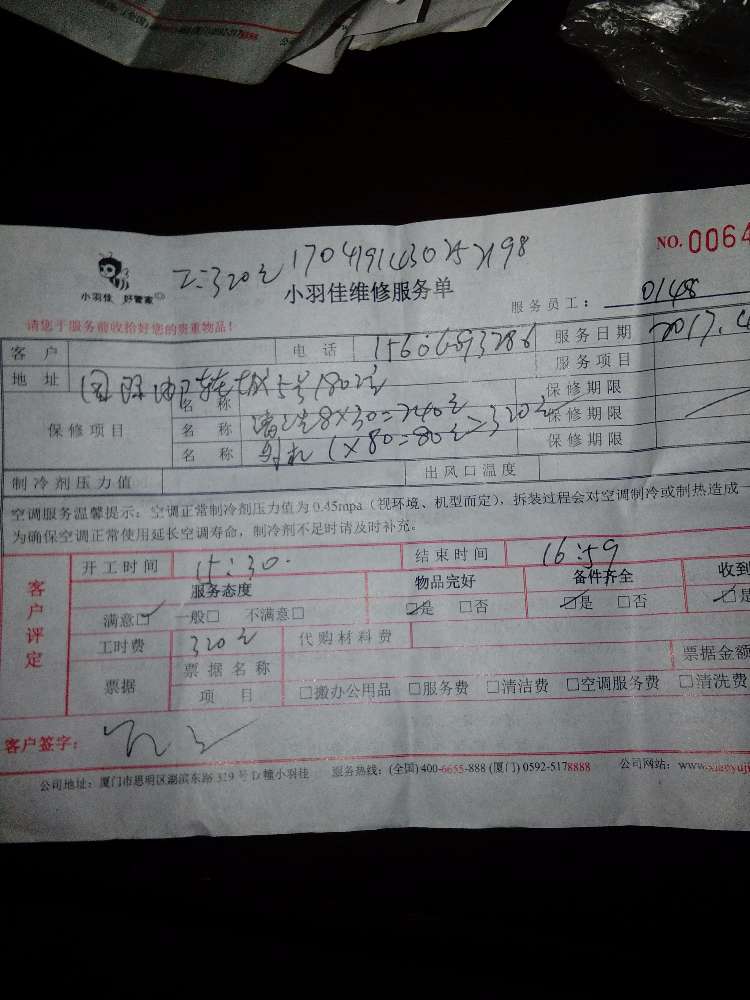 NO. 0064
320元 1704191430252198
小羽佳 好管家
小羽佳维修服务单
服务员工： 0148
请您于服务前收拾好您的贵重物品！
客户 电话 15606093286 服务日期 2017.4
地址 5号1802 服务项目
保修项目 名称 8×30=240元 保修期限
名称 1×80=80元 320元 保修期限
名称 保修期限
制冷剂压力值 出风口温度
空调服务温馨提示：空调正常制冷剂压力值为 0.45mpa（视环境、机型而定），拆装过程会对空调制冷或制热造成一
为确保空调正常使用延长空调寿命，制冷剂不足时请及时补充。
客户评定
开工时间 15:30 结束时间 16:59
服务态度 物品完好 备件齐全 收到
满意□ 一般□ 不满意□ □是 □否 □是 □否 □是
工时费 320元 代购材料费
票据 票据名称 票据金额
项目 □搬办公用品 □服务费 □清洁费 □空调服务费 □清洗费
客户签字：
公司地址：厦门市思明区湖滨东路 319 号 D 幢小羽佳 服务热线：(全国) 400-6655-888 (厦门) 0592-5178888 公司网站：www.xiaoyuji